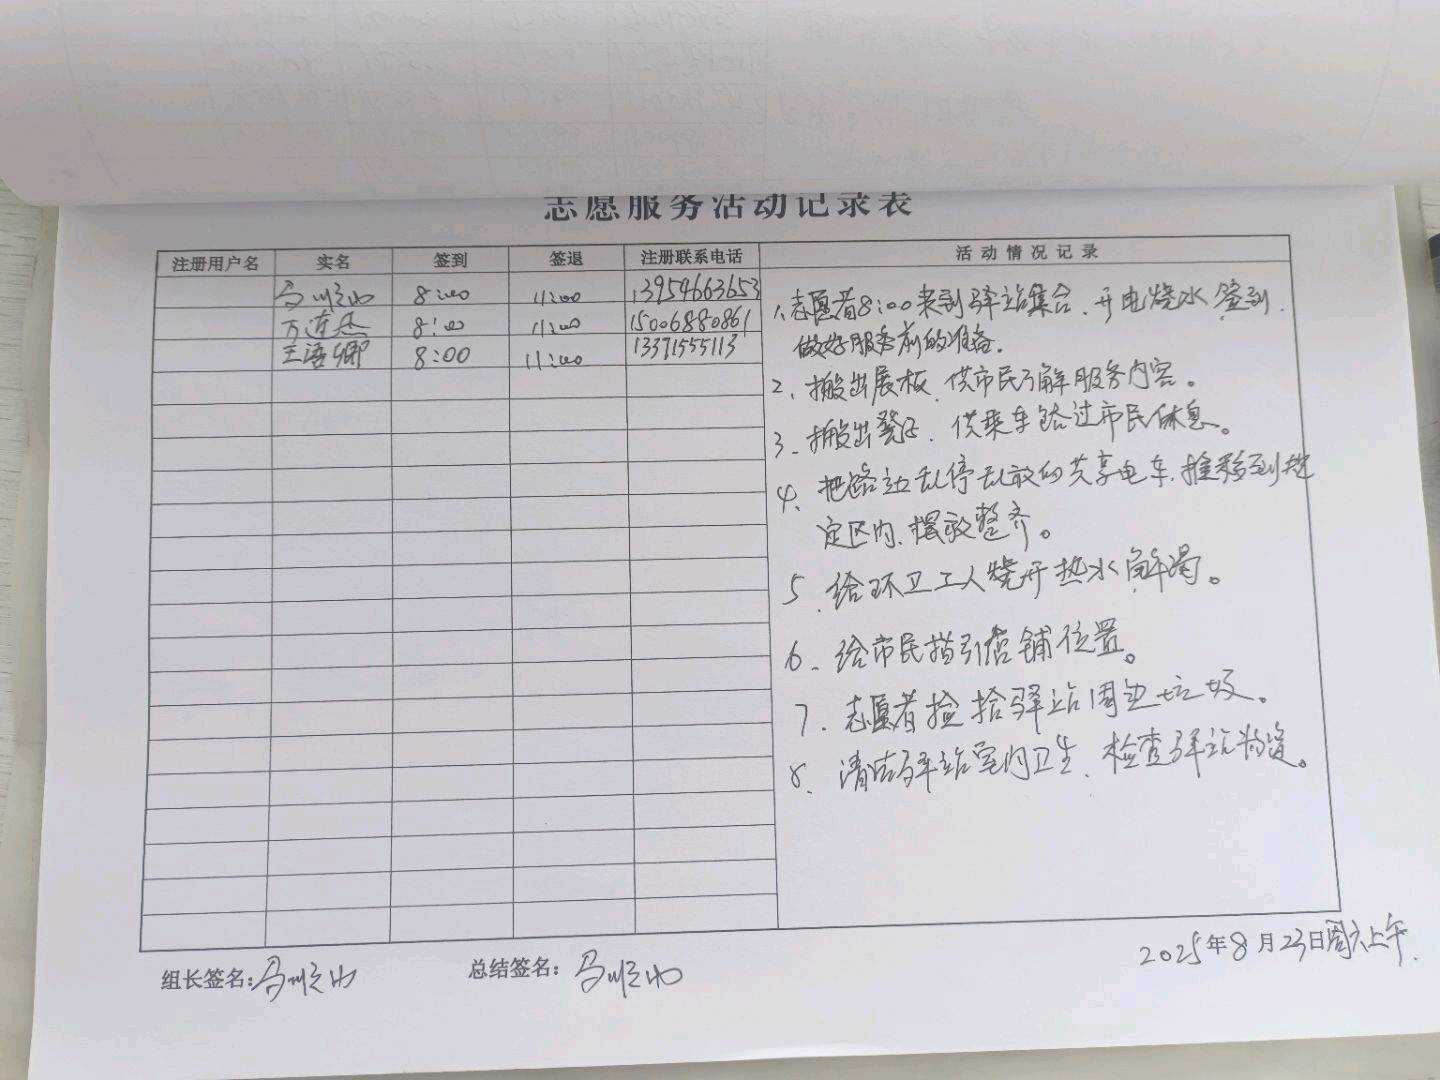 志愿服务活动记录表
注册用户名 实名 签到 签退 注册联系电话 活动情况记录
马顺山 8:00 11:00 13954663653
8:00 11:00 15006880861
王语卿 8:00 11:00 13371555113
1、志愿者8:00来到驿站集合、开电烧水、签到、
做好服务前的准备。
2、搬出展板、供市民了解服务内容。
3、搬出凳子、供乘车路过市民休息。
4、把路边乱停乱放的共享电车、推移到指
定区内、摆放整齐。
5、给环卫工人烧开热水解渴。
6、给市民指引店铺位置。
7、志愿者捡拾驿站周边垃圾。
8、清洁驿站室内卫生、检查驿站物资。
组长签名:马顺山 总结签名:马顺山
2025年8月23日周六上午.